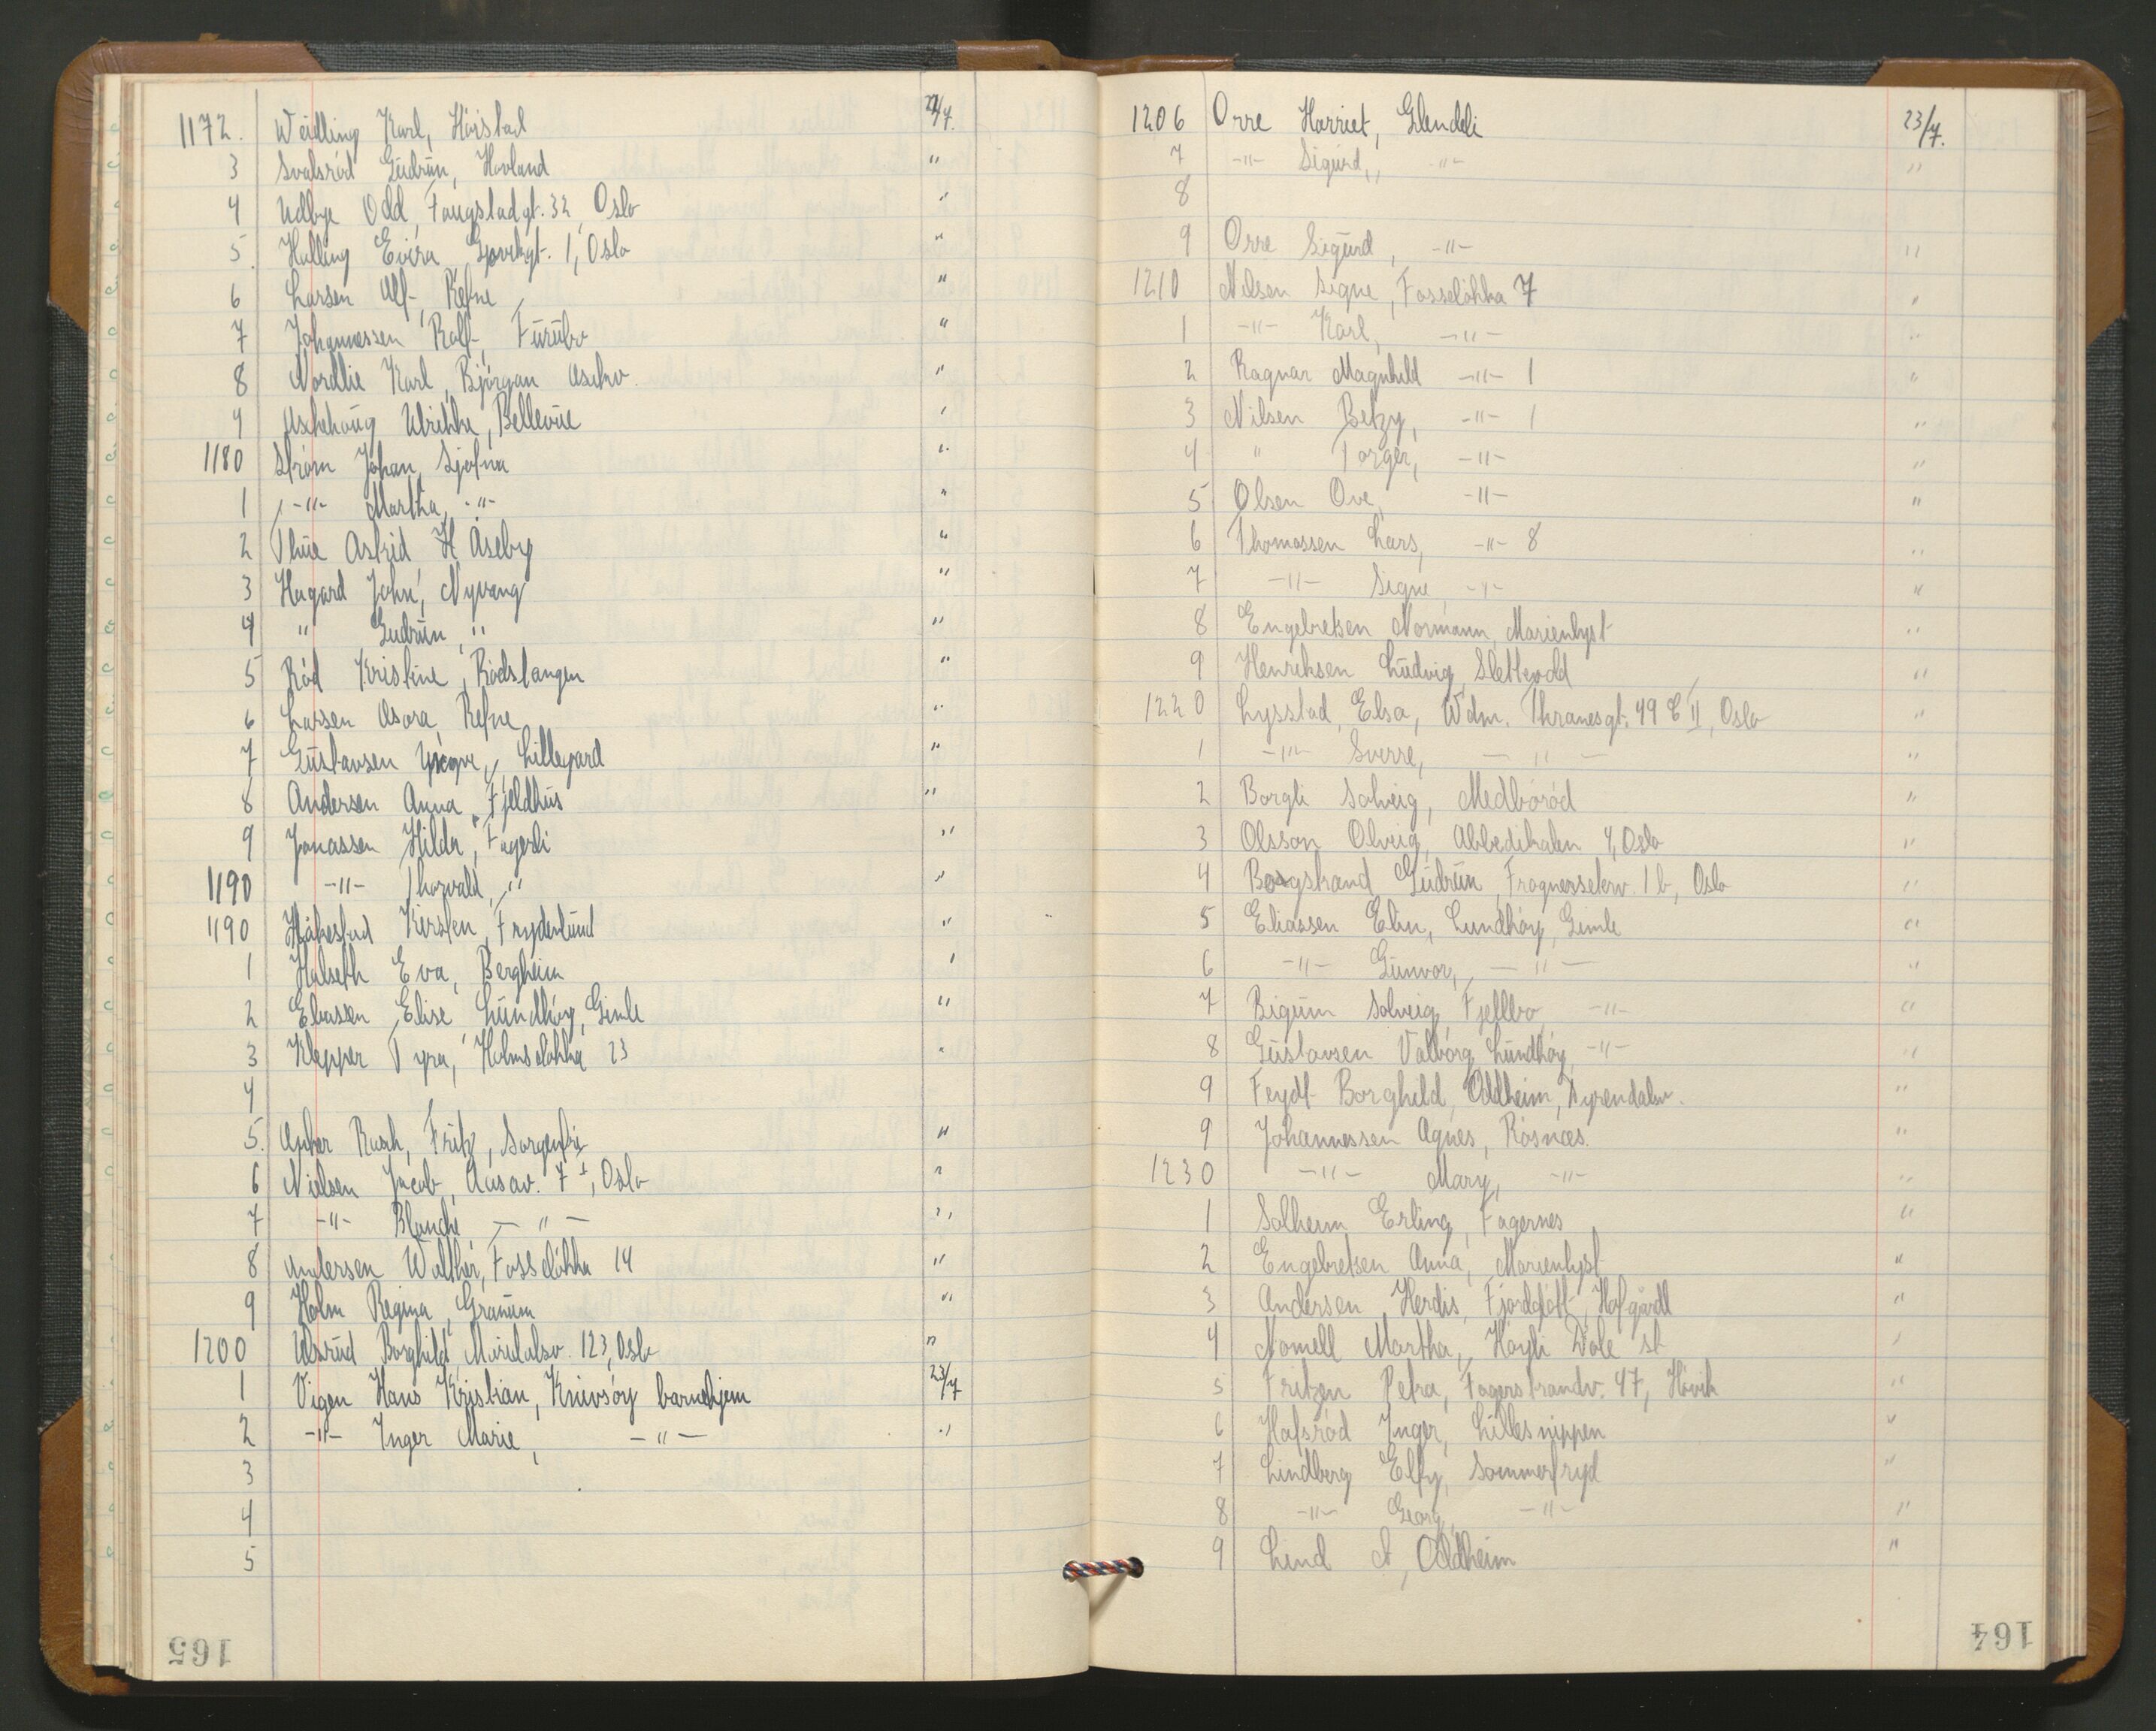 1172. Weidling Karl, Höistad 22/7.
3 Svalsröd Gudrun, Hovland "
4 Udbye Odd, Faugstadgt. 32, Oslo "
5. Halling Evira, Gjøvikgt. 1, Oslo "
6 Larsen Alf, Refne "
7 Johannessen Rolf, Furubo "
8 Nordlie Karl, Björgan Askv. "
9 Aschehoug Ulrikke, Bellevue "
1180 Ström Johan, Sjøfna "
1 -"- Martha, -"- "
2 Thue Astrid H Åseby "
3 Hagard John, Nyvang "
4 " Gudrun, " "
5 Röd Kristine, Rödstangen "
6 Larsen Asora, Refne "
7 Gustavsen Yngve, Lillegard "
8 Andersen Anna, Fjeldhus "
9 Jonassen Hilda, Fagerli "
1190 -"- Thorvald, " "
1190 Håkestad Kirsten, Frydenlund "
1 Halseth Eva, Bergheim "
2 Eliassen Elise Lundhöy, Gimle "
3 Klepper Tyra, Holmsløkka 23 "
4
5. Anker Rasch, Fritz, Sorgenfri "
6 Nielsen Jacob, Aasav. 7 I, Oslo "
7 -"- Blanche, — " — "
8 Andersen Walther, Fossløkka 14 "
9 Holm Regina, Granum "
1200 Ulsrud Borghild, Maridalsv. 123, Oslo "
1 Vigen Hans Kristian, Knivsöy barnehjem 23/7
2 -"- Inger Marie, — " — "
3
4
5
165
1206 Orre Harriet, Glendeli 23/7.
7 -"- Sigurd, -"- "
8
9 Orre Sigurd, -"- "
1210 Nilsen Signe, Fosseløkka 7 "
1 -"- Karl, -"- "
2 Ragnar Magnhild -"- 1 "
3 Nilsen Betzy, -"- 1 "
4 " Torger, -"- "
5 Olsen Ove, -"- "
6 Thomassen Lars, -"- 8 "
7 -"- Signe, -"- "
8 Engebretsen Normann, Marienlyst "
9 Henriksen Ludvig, Slettevold "
1220 Lysstad, Elsa, Wdm. Thranesgt. 49 C II, Oslo "
1 -"- Sverre, — " — "
2 Borgli Solveig, Medböröd "
3 Olsson Olveig, Abbedikalen 4, Oslo "
4 Borgstrand Gudrun, Frognerseterv. 1 b, Oslo "
5 Eliassen Elin, Lundhöy, Gimle "
6 -"- Gunvor, — " — "
7 Bigum Solveig, Fjellbo -"- "
8 Gustavsen Valborg, Lundhöy, -"- "
9 Feydt Borghild, Oddheim, Kyrendalen. "
9 Johannessen Agnes, Rösnæs. "
1230 -"- Mary, -"- "
1 Solheim Erling, Fagernes "
2 Engebretsen Anna, Marienlyst "
3 Andersen Herdis, Fjordgløtt, Hafgårdl "
4 Nomell Martha, Høyli Dale st "
5 Fritzen Petra, Fagerstrandv. 47, Hövik "
6 Hafsröd Inger, Lillesnippen "
7 Lindberg Elfy, Sommerfryd "
8 -"- Georg, -"- "
9 Lund A, Oddheim "
164